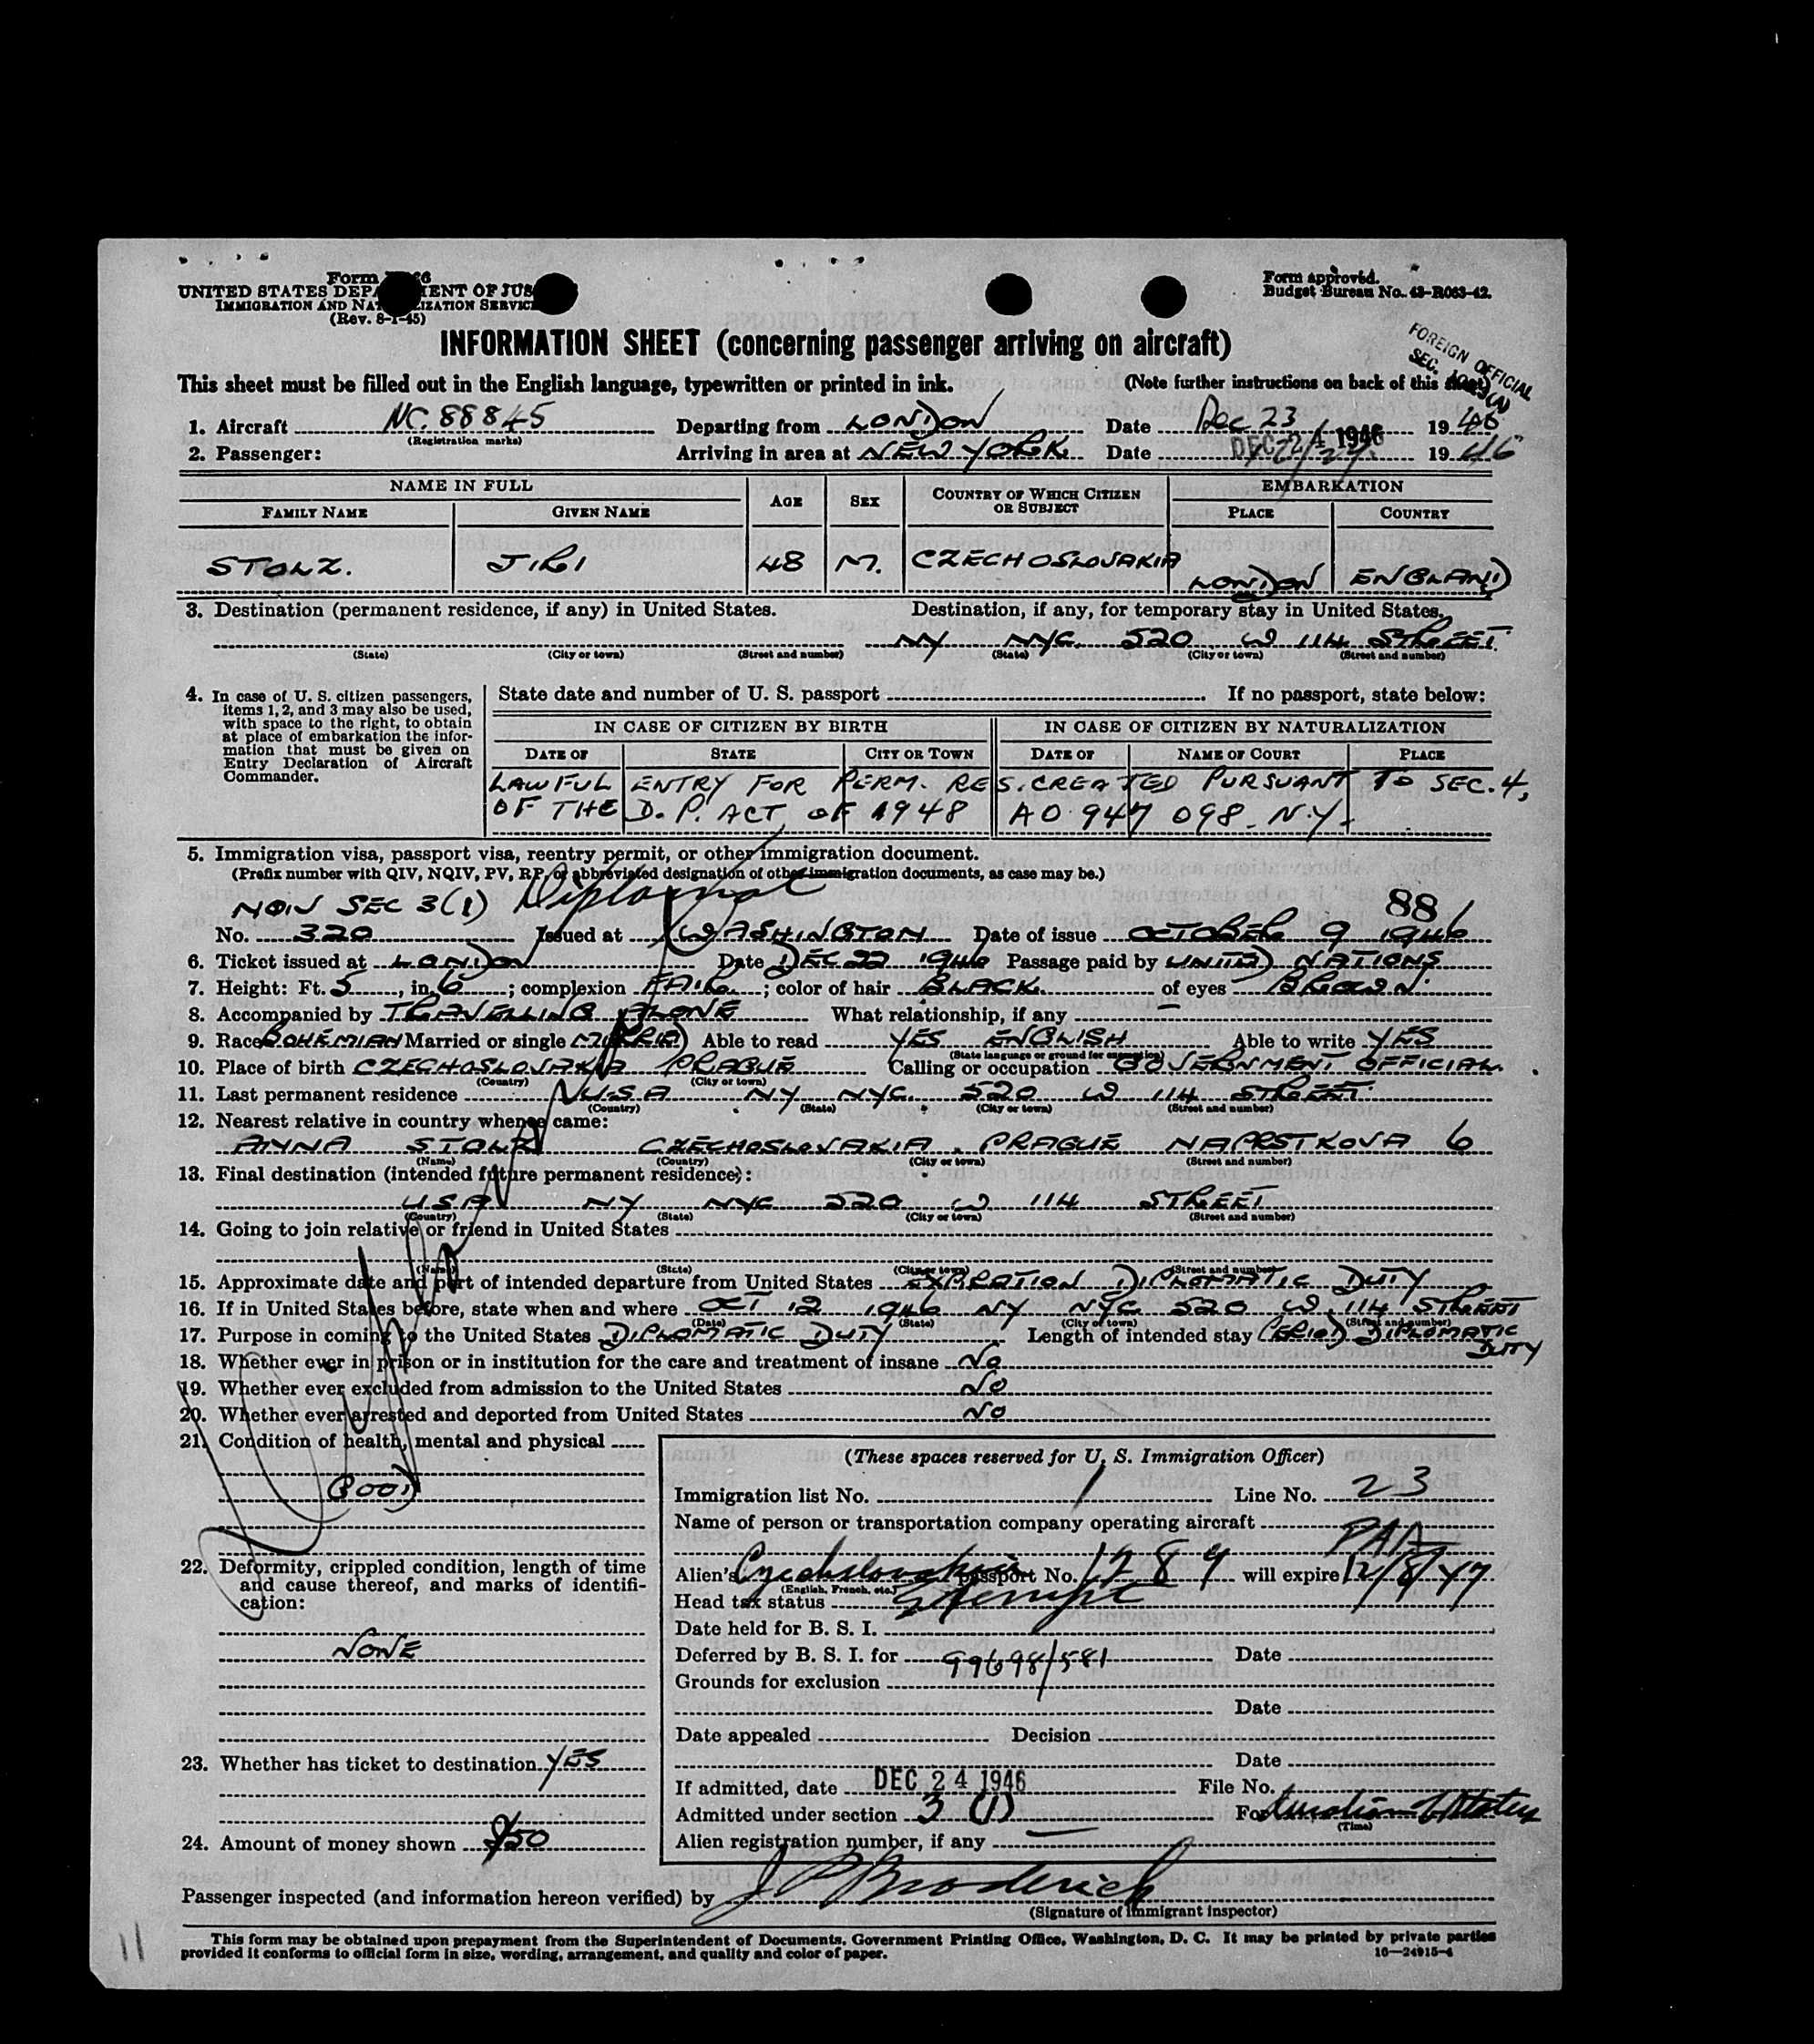 Form
UNITED STATES DEPA MENT OF JUS
IMMIGRATION AND NAT IZATION SERVICE
(Rev. 8-1-45)
Form approved.
Budget Bureau No. 43-R063-42.
INFORMATION SHEET (concerning passenger arriving on aircraft)
FOREIGN OFFICIAL
SEC.
This sheet must be filled out in the English language, typewritten or printed in ink. (Note further instructions on back of this sheet)
1. Aircraft NC. 88845 Departing from LONDON Date Dec 23 1946
(Registration marks)
2. Passenger: Arriving in area at NEW YORK Date DEC 24 1946 12/24 1946
NAME IN FULL AGE SEX COUNTRY OF WHICH CITIZEN OR SUBJECT EMBARKATION
FAMILY NAME GIVEN NAME PLACE COUNTRY
STOLZ. JIRI 48 M. CZECHOSLOVAKIA LONDON ENGLAND
3. Destination (permanent residence, if any) in United States. Destination, if any, for temporary stay in United States.
NY NYC. 520 W 114 STREET.
(State) (City or town) (Street and number) (State) (City or town) (Street and number)
4. In case of U. S. citizen passengers, items 1, 2, and 3 may also be used, with space to the right, to obtain at place of embarkation the information that must be given on Entry Declaration of Aircraft Commander.
State date and number of U. S. passport If no passport, state below:
IN CASE OF CITIZEN BY BIRTH IN CASE OF CITIZEN BY NATURALIZATION
DATE OF STATE CITY OR TOWN DATE OF NAME OF COURT PLACE
LAWFUL ENTRY FOR PERM. RES. CREATED PURSUANT TO SEC. 4,
OF THE D. P. ACT OF 1948 A0 947 098 - N.Y.
5. Immigration visa, passport visa, reentry permit, or other immigration document.
(Prefix number with QIV, NQIV, PV, RP, or abbreviated designation of other immigration documents, as case may be.)
NON SEC 3(1) Diplomat 88
No. 320 Issued at WASHINGTON Date of issue OCTOBER 9 1946
6. Ticket issued at LONDON Date DEC 22 1946 Passage paid by UNITED NATIONS
7. Height: Ft. 5, in. 6; complexion FAIR; color of hair BLACK of eyes BROWN
8. Accompanied by TRAVELLING ALONE What relationship, if any —
9. Race BOHEMIAN Married or single MARRIED Able to read YES ENGLISH Able to write YES
(State language or ground for exemption)
10. Place of birth CZECHOSLOVAKIA PRAGUE Calling or occupation GOVERNMENT OFFICIAL
(Country) (City or town)
11. Last permanent residence USA NY NYC. 520 W 114 STREET
(Country) (State) (City or town) (Street and number)
12. Nearest relative in country whence came:
ANNA STOLZ CZECHOSLOVAKIA. PRAGUE NAPRSTKOVA 6
(Name) (Country) (City or town) (Street and number)
13. Final destination (intended future permanent residence):
USA NY NYC 520 W 114 STREET
(Country) (State) (City or town) (Street and number)
14. Going to join relative or friend in United States
(Name) (State) (City or town) (Street and number)
15. Approximate date and port of intended departure from United States DIPLOMATIC DUTY
16. If in United States before, state when and where OCT 12 1946 NY NYC 520 W. 114 STREET
(Date) (State) (City or town) (Street and number)
17. Purpose in coming to the United States DIPLOMATIC DUTY Length of intended stay PERIOD DIPLOMATIC DUTY
18. Whether ever in prison or in institution for the care and treatment of insane No
19. Whether ever excluded from admission to the United States No
20. Whether ever arrested and deported from United States No
21. Condition of health, mental and physical
GOOD
22. Deformity, crippled condition, length of time and cause thereof, and marks of identification:
NONE
23. Whether has ticket to destination YES
24. Amount of money shown $50
(These spaces reserved for U. S. Immigration Officer)
Immigration list No. 1 Line No. 23
Name of person or transportation company operating aircraft
PAA
Alien's Czechoslovakia passport No. 1284 will expire 12/8/47
(English, French, etc.)
Head tax status Exempt
Date held for B. S. I.
Deferred by B. S. I. for 99698/581 Date
Grounds for exclusion
Date
Date appealed Decision
Date
If admitted, date DEC 24 1946 File No.
Admitted under section 3 (1) For duration of Status
(Time)
Alien registration number, if any —
Passenger inspected (and information hereon verified) by J P Broderick
(Signature of immigrant inspector)
This form may be obtained upon prepayment from the Superintendent of Documents, Government Printing Office, Washington, D. C. It may be printed by private parties
provided it conforms to official form in size, wording, arrangement, and quality and color of paper. 16—24915-4
11